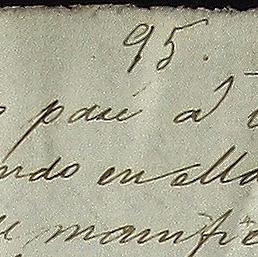 95.
pasé á
ndo en ella
manifie